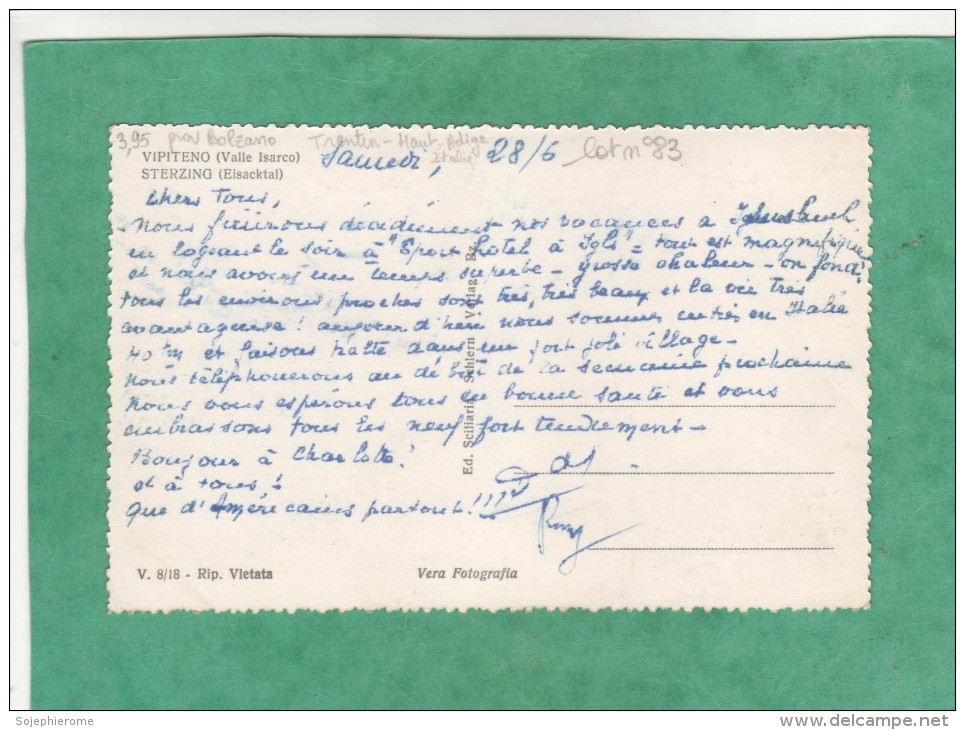 3,95 prov Bolzano Trentin-Haut-Adige
Italie
lot n°83
VIPITENO (Valle Isarco)
STERZING (Eisacktal)
Samedi, 28/6
Chers Tous,
nous finirons décidément nos vacances à
en logeant le soir à "Sport hotel à Igls" - tout est magnifique
et nous avons un temps superbe - grosse chaleur - on fond.
tous les environs proches sont très, très beaux et la vie très
avantageuse! aujourd'hui nous sommes entrés en Italie
et faisons halte dans un fort joli village -
nous téléphonerons au début de la semaine prochaine
nous vous espérons tous en bonne santé et vous
embrassons tous les neuf fort tendrement -
Bonjour à Charlotte!
et à tous!
que d'Américains partout!!!!
Ed. Sciliaria - Schlern Verlag Bz.
V. 8/18 - Rip. Vietata
Vera Fotografia
Sojephierome
www.delcampe.net